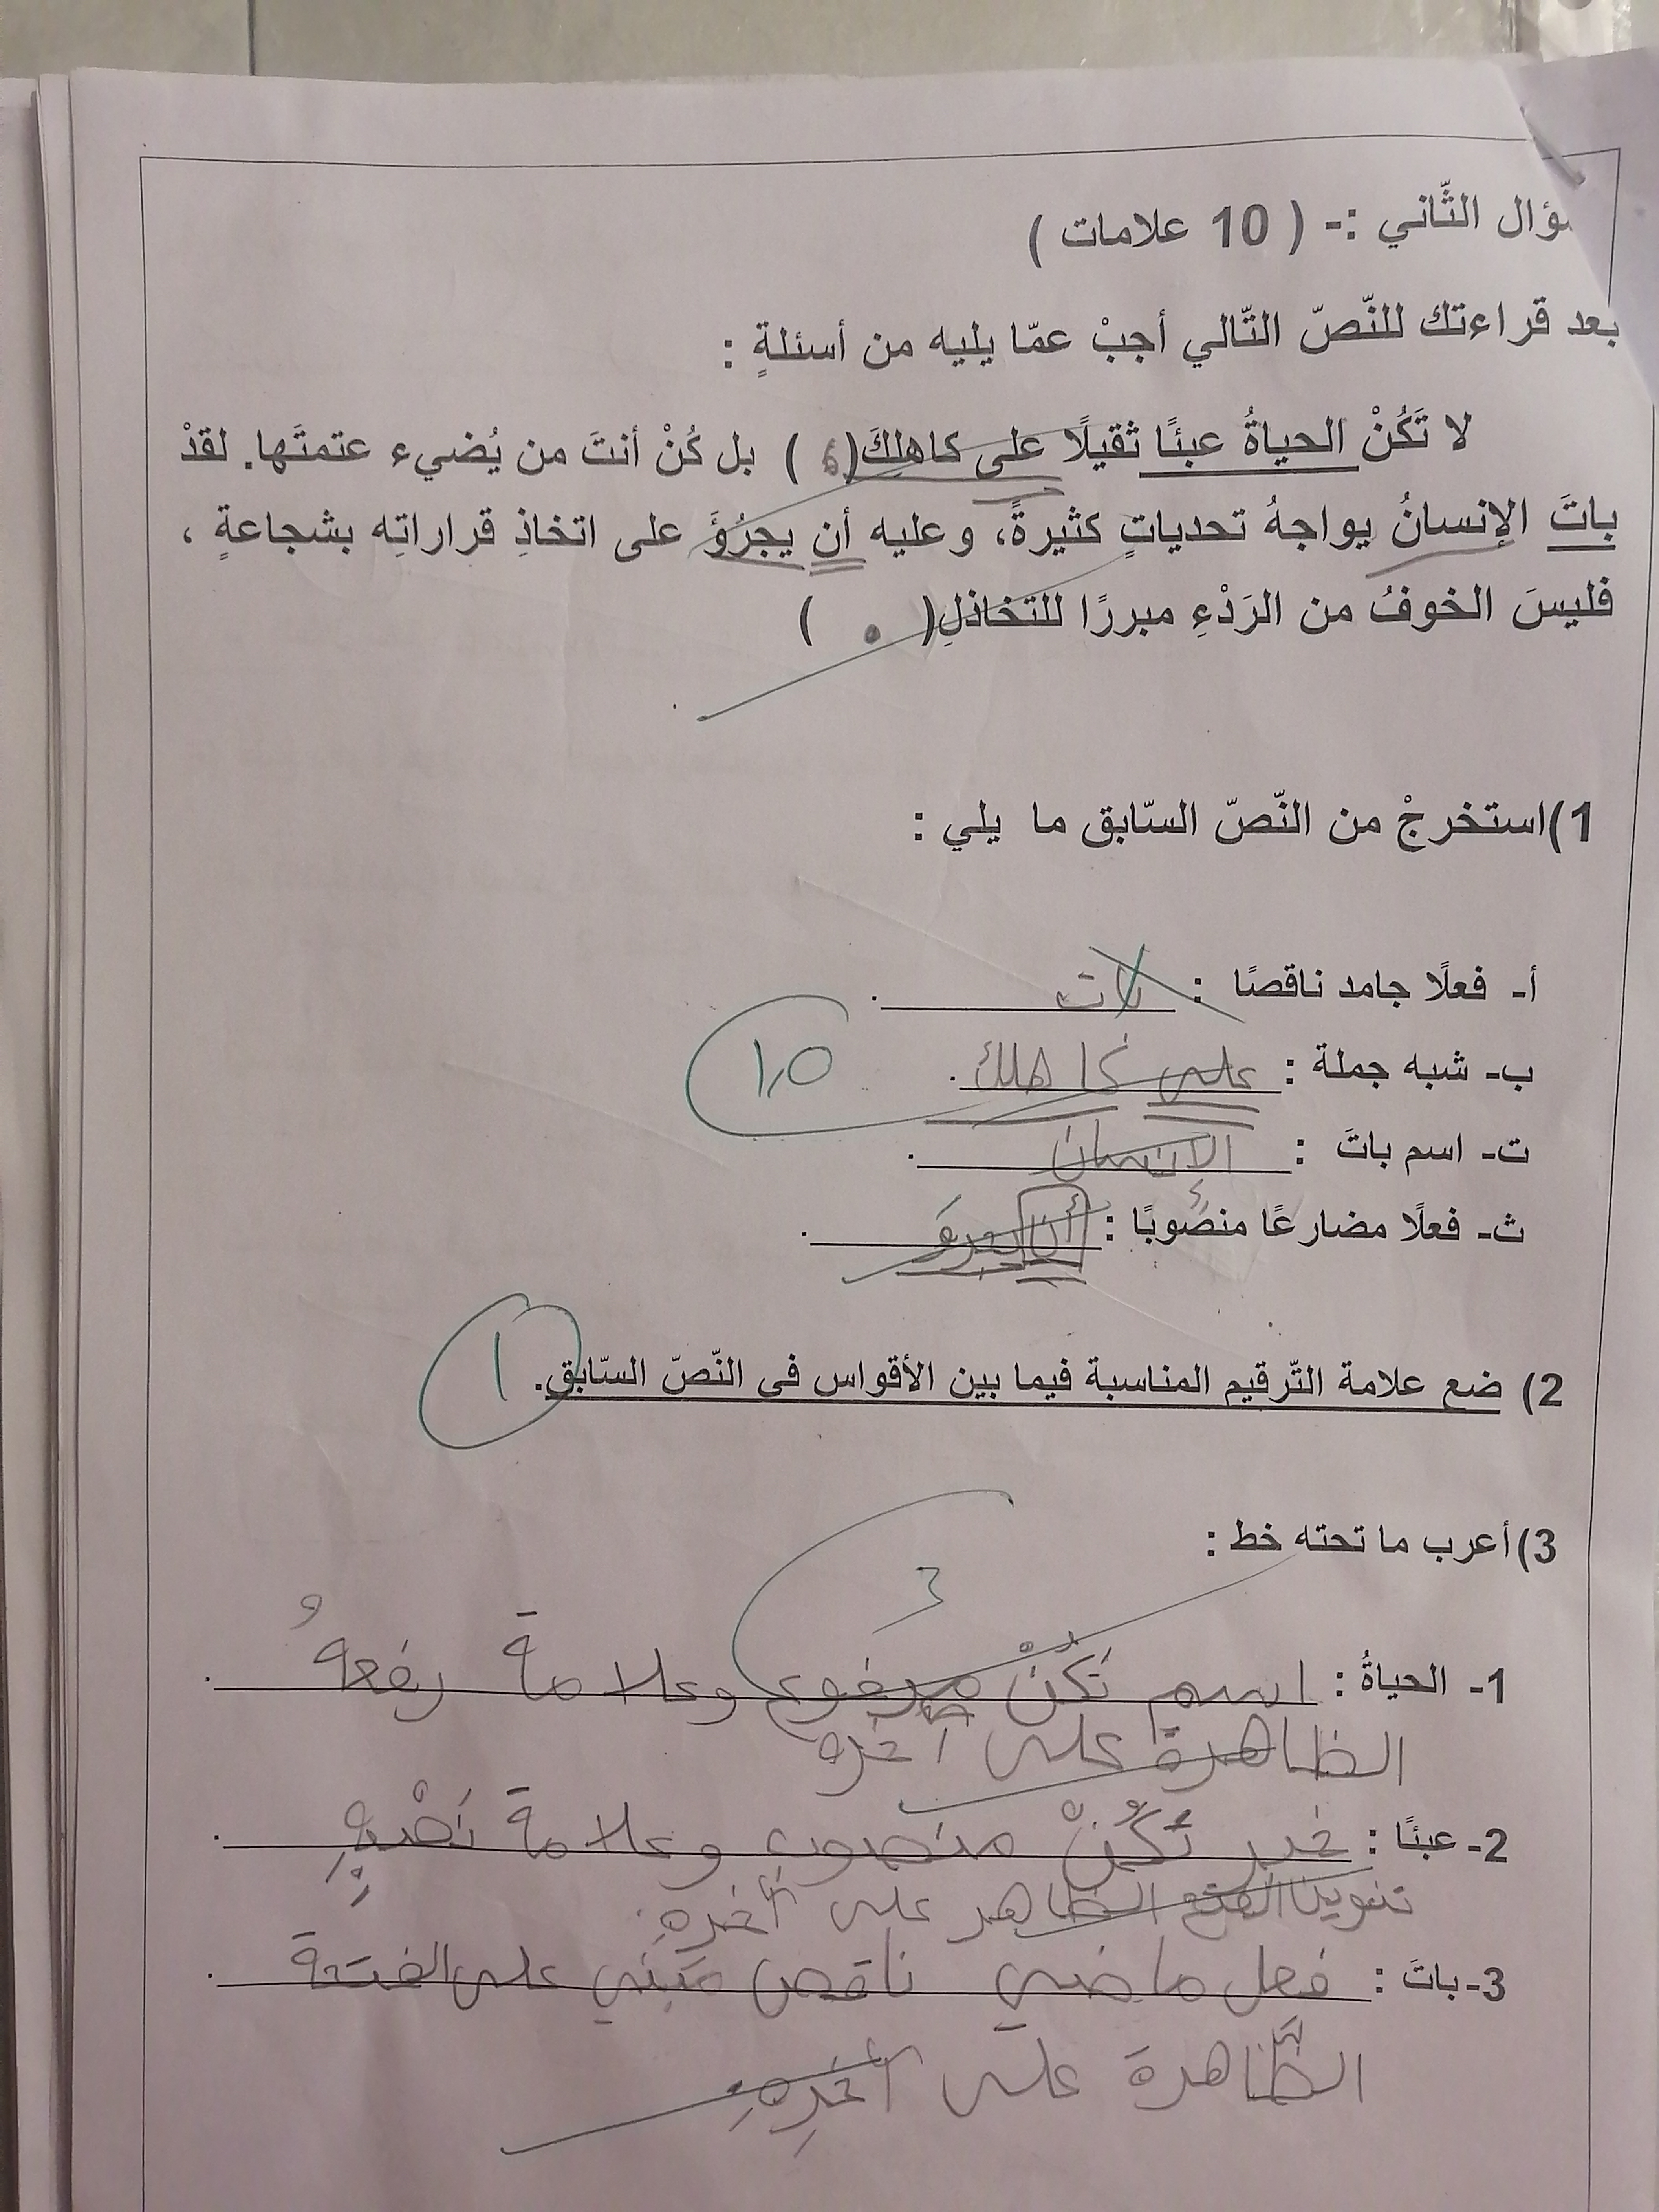 ؤال الثّاني :- ( 10 علامات )
بعد قراءتك للنّصّ التّالي أجبْ عمّا يليه من أسئلةٍ :
لا تَكُنْ الحياةُ عبئًا ثقيلًا على كاهلِكَ( ، ) بل كُنْ أنتَ من يُضيء عتمتَها. لقدْ
باتَ الإنسانُ يواجهُ تحدياتٍ كثيرةً، وعليه أن يجرُؤَ على اتخاذِ قراراتِه بشجاعةٍ ،
فليسَ الخوفُ من الرَدْءِ مبررًا للتخاذلِ( . )
1)استخرجْ من النّصّ السّابق ما يلي :
أ- فعلًا جامد ناقصًا : بات .
ب- شبه جملة : على كاهلك . ١,٥
ت- اسم باتَ : الإنسان .
ث- فعلًا مضارعًا منصوبًا : أن يجرؤَ .
2) ضع علامة التّرقيم المناسبة فيما بين الأقواس في النّصّ السّابق. ١
3)أعرب ما تحته خط :
٣
1- الحياةُ : اسم تَكُنْ مرفوع وعلامة رفعهُ .
الظاهرة على آخره
2- عبئًا : خبر تَكُنْ منصوب وعلامة نَصْبِهِ .
تنوين الفتح الظاهر على آخره.
3-باتَ : فعل ماضي ناقص مَبْني على الفتحة .
الظَّاهرة على آخرِهِ.